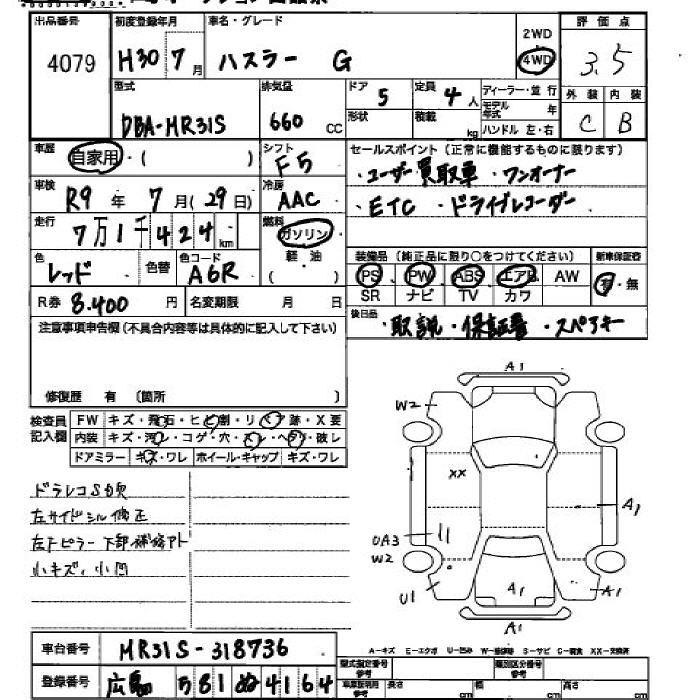 出品番号 初度登録年月 車名・グレード 2WD 評価点
4079 H30 7月 ハスラー G 4WD 3.5
型式 排気量 ドア 定員 ディーラー・並行 外装 内装
DBA-MR31S 660 CC 5 4人 モデル年式 年 C B
形状 積載 kg ハンドル 左・右
車歴 自家用・( ) シフト F5 セールスポイント(正常に機能するものに限ります)
・ユーザー買取車・ワンオーナー
車検 R9年 7月(29日) 冷房 AAC ・ETC・ドライブレコーダー
走行 7万1千424km 燃料 ガソリン
軽・油 装備品(純正品に限り○をつけてください) 新車保証書
色 レッド 色替 色コード A6R PS PW ABS エアB AW 有・無
SR ナビ TV カワ
R券 8.400円 名変期限 月 日 後日品 ・取説・保証書・スペアキー
注意事項申告欄(不具合内容等は具体的に記入して下さい)
修復歴 有 (箇所 )
検査員記入欄 FW キズ・飛石・ヒビ割・リペア跡・X要
内装 キズ・汚レ・コゲ・穴・スレ・ヘタリ・破レ
ドアミラー キズ・ワレ ホイール・キャップ キズ・ワレ
A1
W2
XX
A1
UA3
W2
U1 A1 A1
A1
ドラレコS力欠
左サイドシル修正
左Fピラー下部補修アト
小キズ、小凹
A-キズ E-エクボ U-凹み W-補修跡 S-サビ C-腐食 XX-交換済
車台番号 MR31S-318736
型式指定番号 参考 類別区分番号 参考
登録番号 広島 581 ぬ 4164
長さ cm 幅 cm 高さ cm